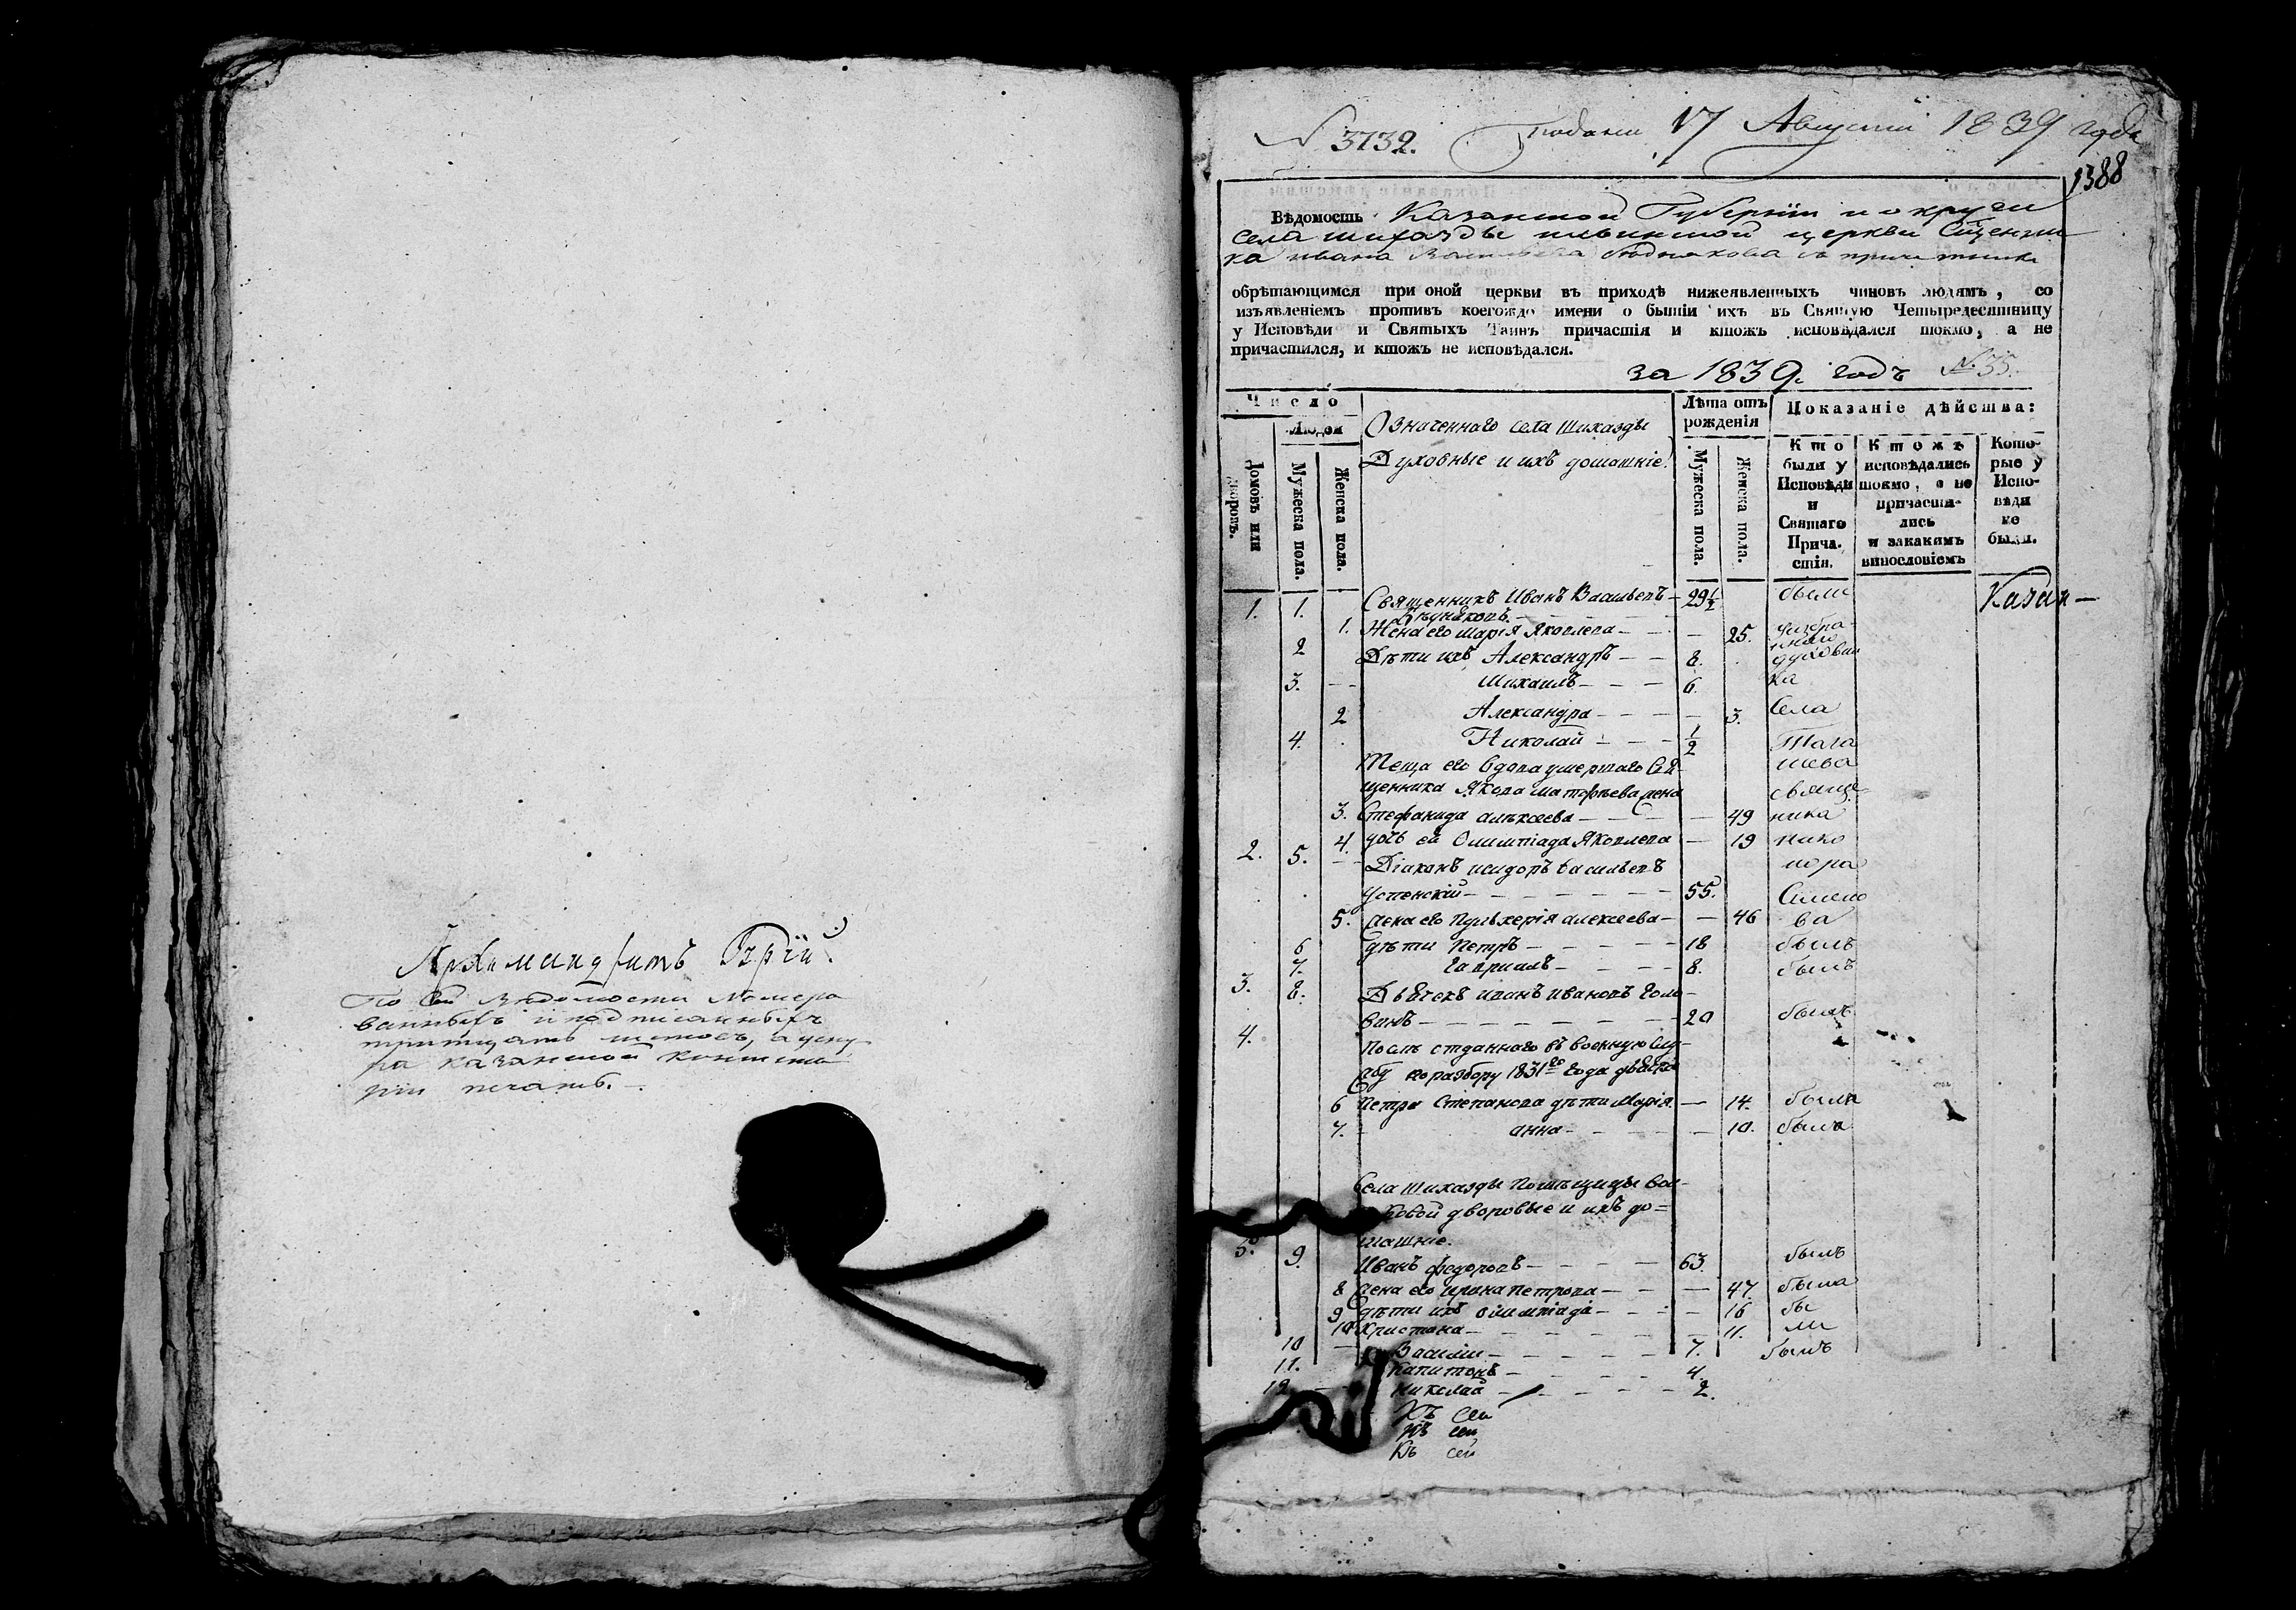 Архимандритъ Гурій.
По сей Ведомости Номеро
ванныхъ и подписанныхъ
тритцать листовъ, а у сну
ра казанской консисто
ріи печать.
N 3732. Подана 17 Августа 1839 года
1388
Вѣдомость Казанской Губерніи и округи
села шихазды ильинской церкви Священни
ка ивана Васильева с причетники
обрѣтающимся при оной церкви въ приходѣ нижеявленныхъ чиновъ людямъ, со
изъявленіемъ противъ коегождо имени о бытіи ихъ въ Святую Четыредесятницу
у Исповѣди и Святыхъ Таинъ причастія и ктожъ исповѣдался токмо, а не
причастился, и ктожъ не исповѣдался.
за 1839. годъ №35.
Число
Людей
Домовъ или дворовъ.
Мужеска пола.
Женска пола.
Означеннаго села Шихазды
Духовные и ихъ домашніе.
Лѣта отъ рожденія
Мужеска пола.
Женска пола.
Показаніе дѣйства:
Кто были у Исповѣди и Святаго Причастія.
Ктожъ исповѣдались токмо, а не причастились и закакимъ винословіемъ
Которые у Исповѣди не были.
1. 1. Священникъ Иванъ Васильевъ - 29 1/2 были Казан-
1. Жена его Марія Яковлева - - - 25.
2 Дѣти ихъ Александръ - - 8. духовни
3. - - Михаилъ - - - 6. ка
2 Александра - - - - 3. Села
4. Николай - - - 1/2
Теща его вдова умершаго Свя-
щенника Якова матфѣева жена свяще
3. Стефанида алексеева - - - - 49 ника
4. дочь ей Олимпіада Яковлева - 19 нико
2. 5. - - Діаконъ исидоръ васильевъ нора
Успенскій - - - - - - 55. Симено
5. жена его Пульхерія алексеева - - 46 ва
6 дѣти Петръ - - - - - 18 былъ
7. гавріилъ - - - - 8. былъ
3. 8. Дьячекъ иванъ ивановъ голо-
винъ - - - - - - - 20 былъ
4. Послѣ отданнаго въ военную слу-
жбу по разбору 1831го года дьячка
6 Петра Степанова дѣти Марія - 14. была
7. - анна - - - - - 10. была
Села шихазды Помѣщицы вол-
ковой дворовые и ихъ до=
машніе.
5. 9. Иванъ федоровъ - - - - 63. былъ
8 жена его ирина петрова - - - 47. была
9 дѣти ихъ олимпіада - - - - 16 бы
10 Христина - - - - - - 11. ли
10 - Василій - - - - - 7. былъ
11. Капитонъ - - - - - 4.
12 - - Николай - - - - - 2.
Къ сей
Къ сей
Къ сей